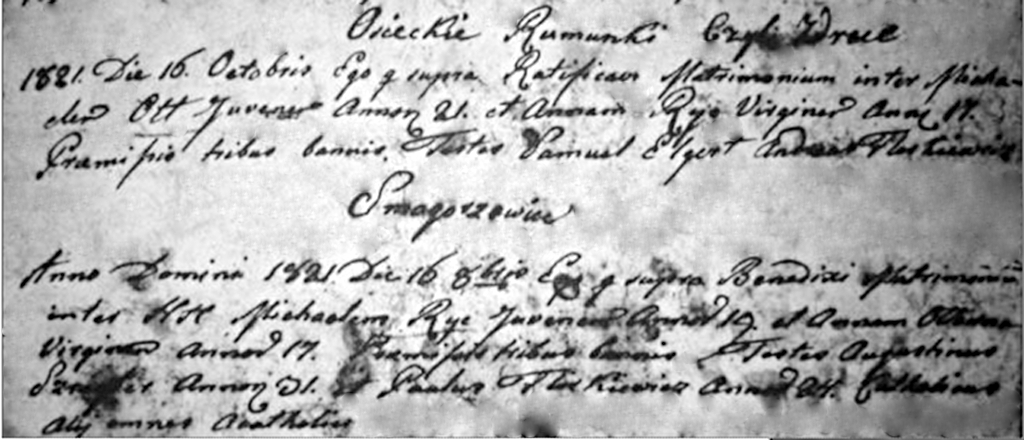 Osieckie Rumunki Czyli Zdroie
1821. Die 16. Octobris Ego q supra Ratificavi Matrimonium inter Micha-
elem Ott Juvenem Annor 21. et Annam Ryc Virginem Annor 17.
Pramissis tribus bannis. Testes Samuel Elgert Andreas Floskiewicz
Smagorzewice
Anno Domini 1821 Die 16 8bris Ego q supra Benedixi Matrimonium
inter HH Michaelem Ryc Juvenem Annor 19. et Annam
Virginem Annor 17. Pramissis tribus bannis Testes Augustinus
Annor 31. et Paulus Floskiewicz Annor 24. Catholicus
alij omnes Acatholici